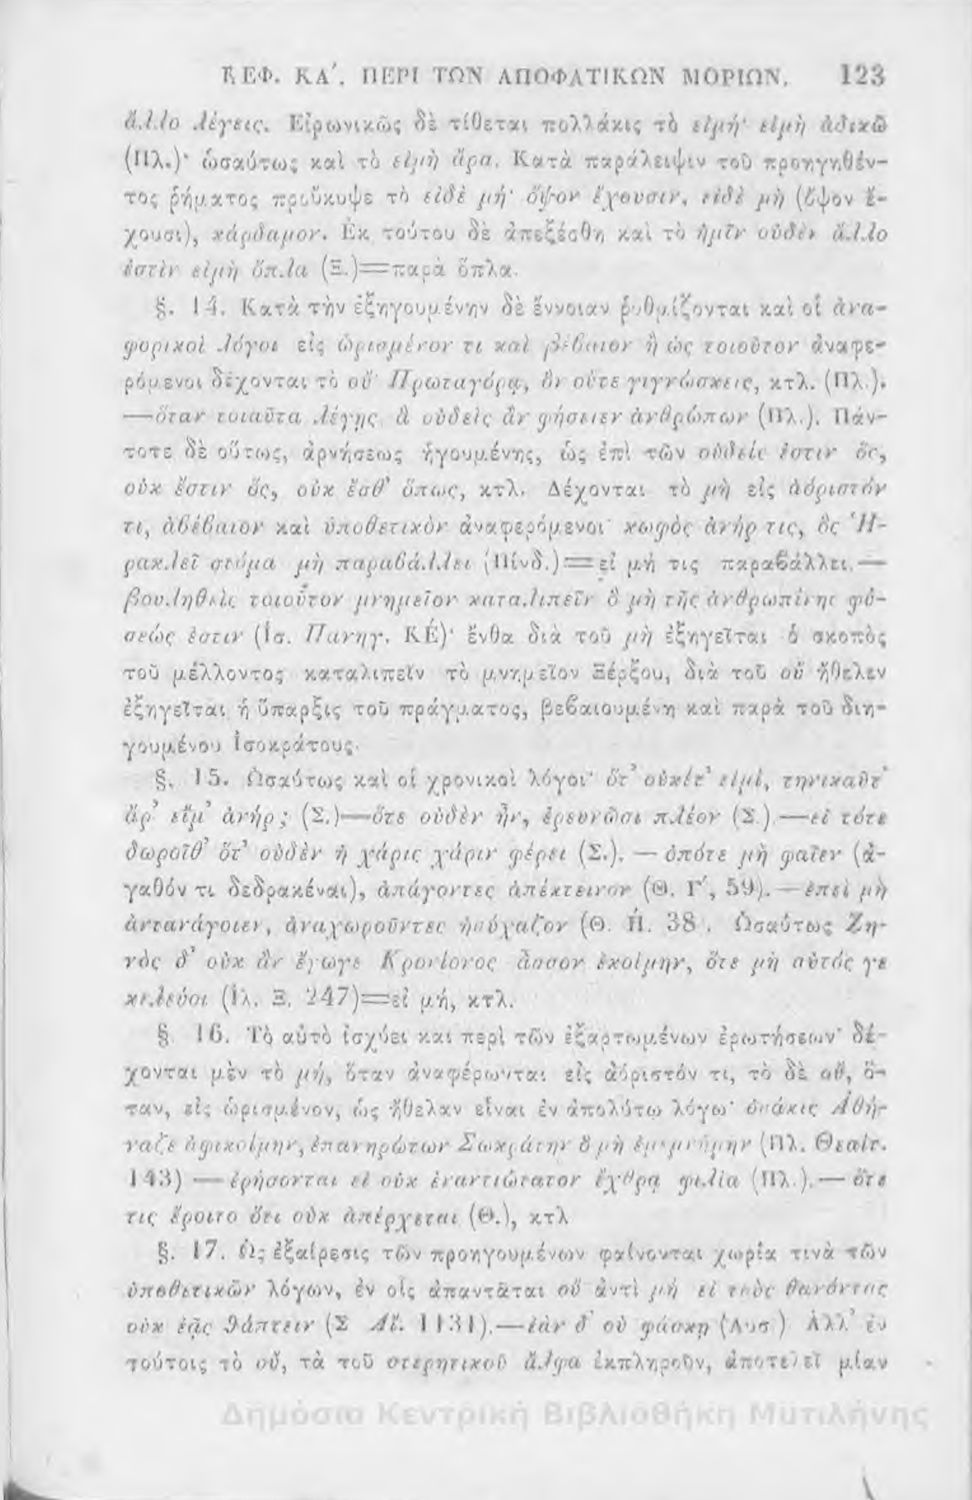 ΚΕΦ. ΚΑ΄. ΠΕΡΙ ΤΩΝ ΑΠΟΦΑΤΙΚΩΝ ΜΟΡΙΩΝ. 123
ἄλλο λέγεις. Εἰρωνικῶς δὲ τίθεται πολλάκις τὸ εἰμή· εἰμὴ ἀδικῶ
(Πλ.)· ὡσαύτως καὶ τὸ εἰμὴ ἄρα. Κατὰ παράλειψιν τοῦ προηγηθέν-
τος ῥήματος προὔκυψε τὸ εἰδὲ μή· ὄψον ἔχουσιν, εἰδὲ μὴ (ὄψον ἔ-
χουσι), κάρδαμον. Ἐκ τούτου δὲ ἀπεξέσθη καὶ τὸ ἡμῖν οὐδὲν ἄλλο
ἐστὶν εἰμὴ ὅπλα (Ξ.)=παρὰ ὅπλα.
§. 14. Κατὰ τὴν ἐξηγουμένην δὲ ἔννοιαν ῥυθμίζονται καὶ οἱ ἀνα-
φορικοὶ λόγοι εἰς ὡρισμένον τι καὶ βέβαιον ἢ ὡς τοιοῦτον ἀναφε-
ρόμενοι δέχονται τὸ οὔ· Πρωταγόρᾳ, ὃν οὔτε γιγνώσκεις, κτλ. (Πλ.).
—ὅταν τοιαῦτα λέγῃς ἃ οὐδεὶς ἂν φήσειεν ἀνθρώπων (Πλ.). Πάν-
τοτε δὲ οὕτως, ἀρνήσεως ἡγουμένης, ὡς ἐπὶ τῶν οὐδείς ἐστιν ὅς,
οὐκ ἔστιν ὅς, οὐκ ἔσθ' ὅπως, κτλ. Δέχονται τὸ μὴ εἰς ἀόριστόν
τι, ἀβέβαιον καὶ ὑποθετικὸν ἀναφερόμενοι· κωφὸς ἀνήρ τις, ὃς Ἡ-
ρακλεῖ στόμα μὴ παραβάλλει (Πίνδ.)=εἰ μή τις παραβάλλει.—
βουληθεὶς τοιοῦτον μνημεῖον καταλιπεῖν ὃ μὴ τῆς ἀνθρωπίνης φύ-
σεώς ἐστιν (Ἰσ. Πανηγ. ΚΕ)· ἔνθα διὰ τοῦ μὴ ἐξηγεῖται ὁ σκοπὸς
τοῦ μέλλοντος καταλιπεῖν τὸ μνημεῖον Ξέρξου, διὰ τοῦ οὐ ἤθελεν
ἐξηγεῖται ἡ ὕπαρξις τοῦ πράγματος, βεβαιουμένη καὶ παρὰ τοῦ διη-
γουμένου Ἰσοκράτους.
§. 15. Ὡσαύτως καὶ οἱ χρονικοὶ λόγοι· ὅτ' οὐκέτ' εἰμί, τηνικαῦτ'
ἄρ' εἴμ' ἀνήρ; (Σ.)—ὅτε οὐδὲν ἦν, ἐρευνῶσι πλέον (Σ.).—εἰ τότε
δωροῖθ' ὅτ' οὐδὲν ἡ χάρις χάριν φέρει (Σ.). —ὁπότε μὴ φαῖεν (ἀ-
γαθόν τι δεδρακέναι), ἀπάγοντες ἀπέκτεινον (Θ. Γ', 59).—ἐπεὶ μὴ
ἀντανάγοιεν, ἀναχωροῦντες ἡσύχαζον (Θ. Η. 38). Ὡσαύτως Ζη-
νὸς δ' οὐκ ἂν ἔγωγε Κρονίονος ἆσσον ἱκοίμην, ὅτε μὴ αὐτός γε
κελεύοι (Ἰλ. Ξ. 247)=εἰ μή, κτλ.
§. 16. Τὸ αὐτὸ ἰσχύει καὶ περὶ τῶν ἐξαρτωμένων ἐρωτήσεων· δέ-
χονται μὲν τὸ μή, ὅταν ἀναφέρωνται εἰς ἀόριστόν τι, τὸ δὲ οὔ, ὅ-
ταν, εἰς ὡρισμένον, ὡς ἤθελαν εἶναι ἐν ἀπολύτῳ λόγῳ· ὁσάκις Ἀθή-
ναζε ἀφικοίμην, ἐπανηρώτων Σωκράτην ὃ μὴ ἐμεμνήμην (Πλ. Θεαίτ.
143) — ἐρήσονται εἰ οὐκ ἐναντιώτατον ἔχθρᾳ φιλία (Πλ.).— ὅτε
τις ἔροιτο ὅτι οὐκ ἀπέρχεται (Θ.), κτλ
§. 17. Ὡς ἐξαίρεσις τῶν προηγουμένων φαίνονται χωρία τινὰ τῶν
ὑποθετικῶν λόγων, ἐν οἷς ἀπαντᾶται οὐ ἀντὶ μή εἰ τοὺς θανόντας
οὐκ ἐᾷς θάπτειν (Σ Αἴ. 1131).—ἐὰν δ' οὐ φάσκῃ (Λυσ.) Ἀλλ' ἐν
τούτοις τὸ οὔ, τὰ τοῦ στερητικοῦ ἄλφα ἐκπληροῦν, ἀποτελεῖ μίαν
Δημόσια Κεντρική Βιβλιοθήκη Μυτιλήνης